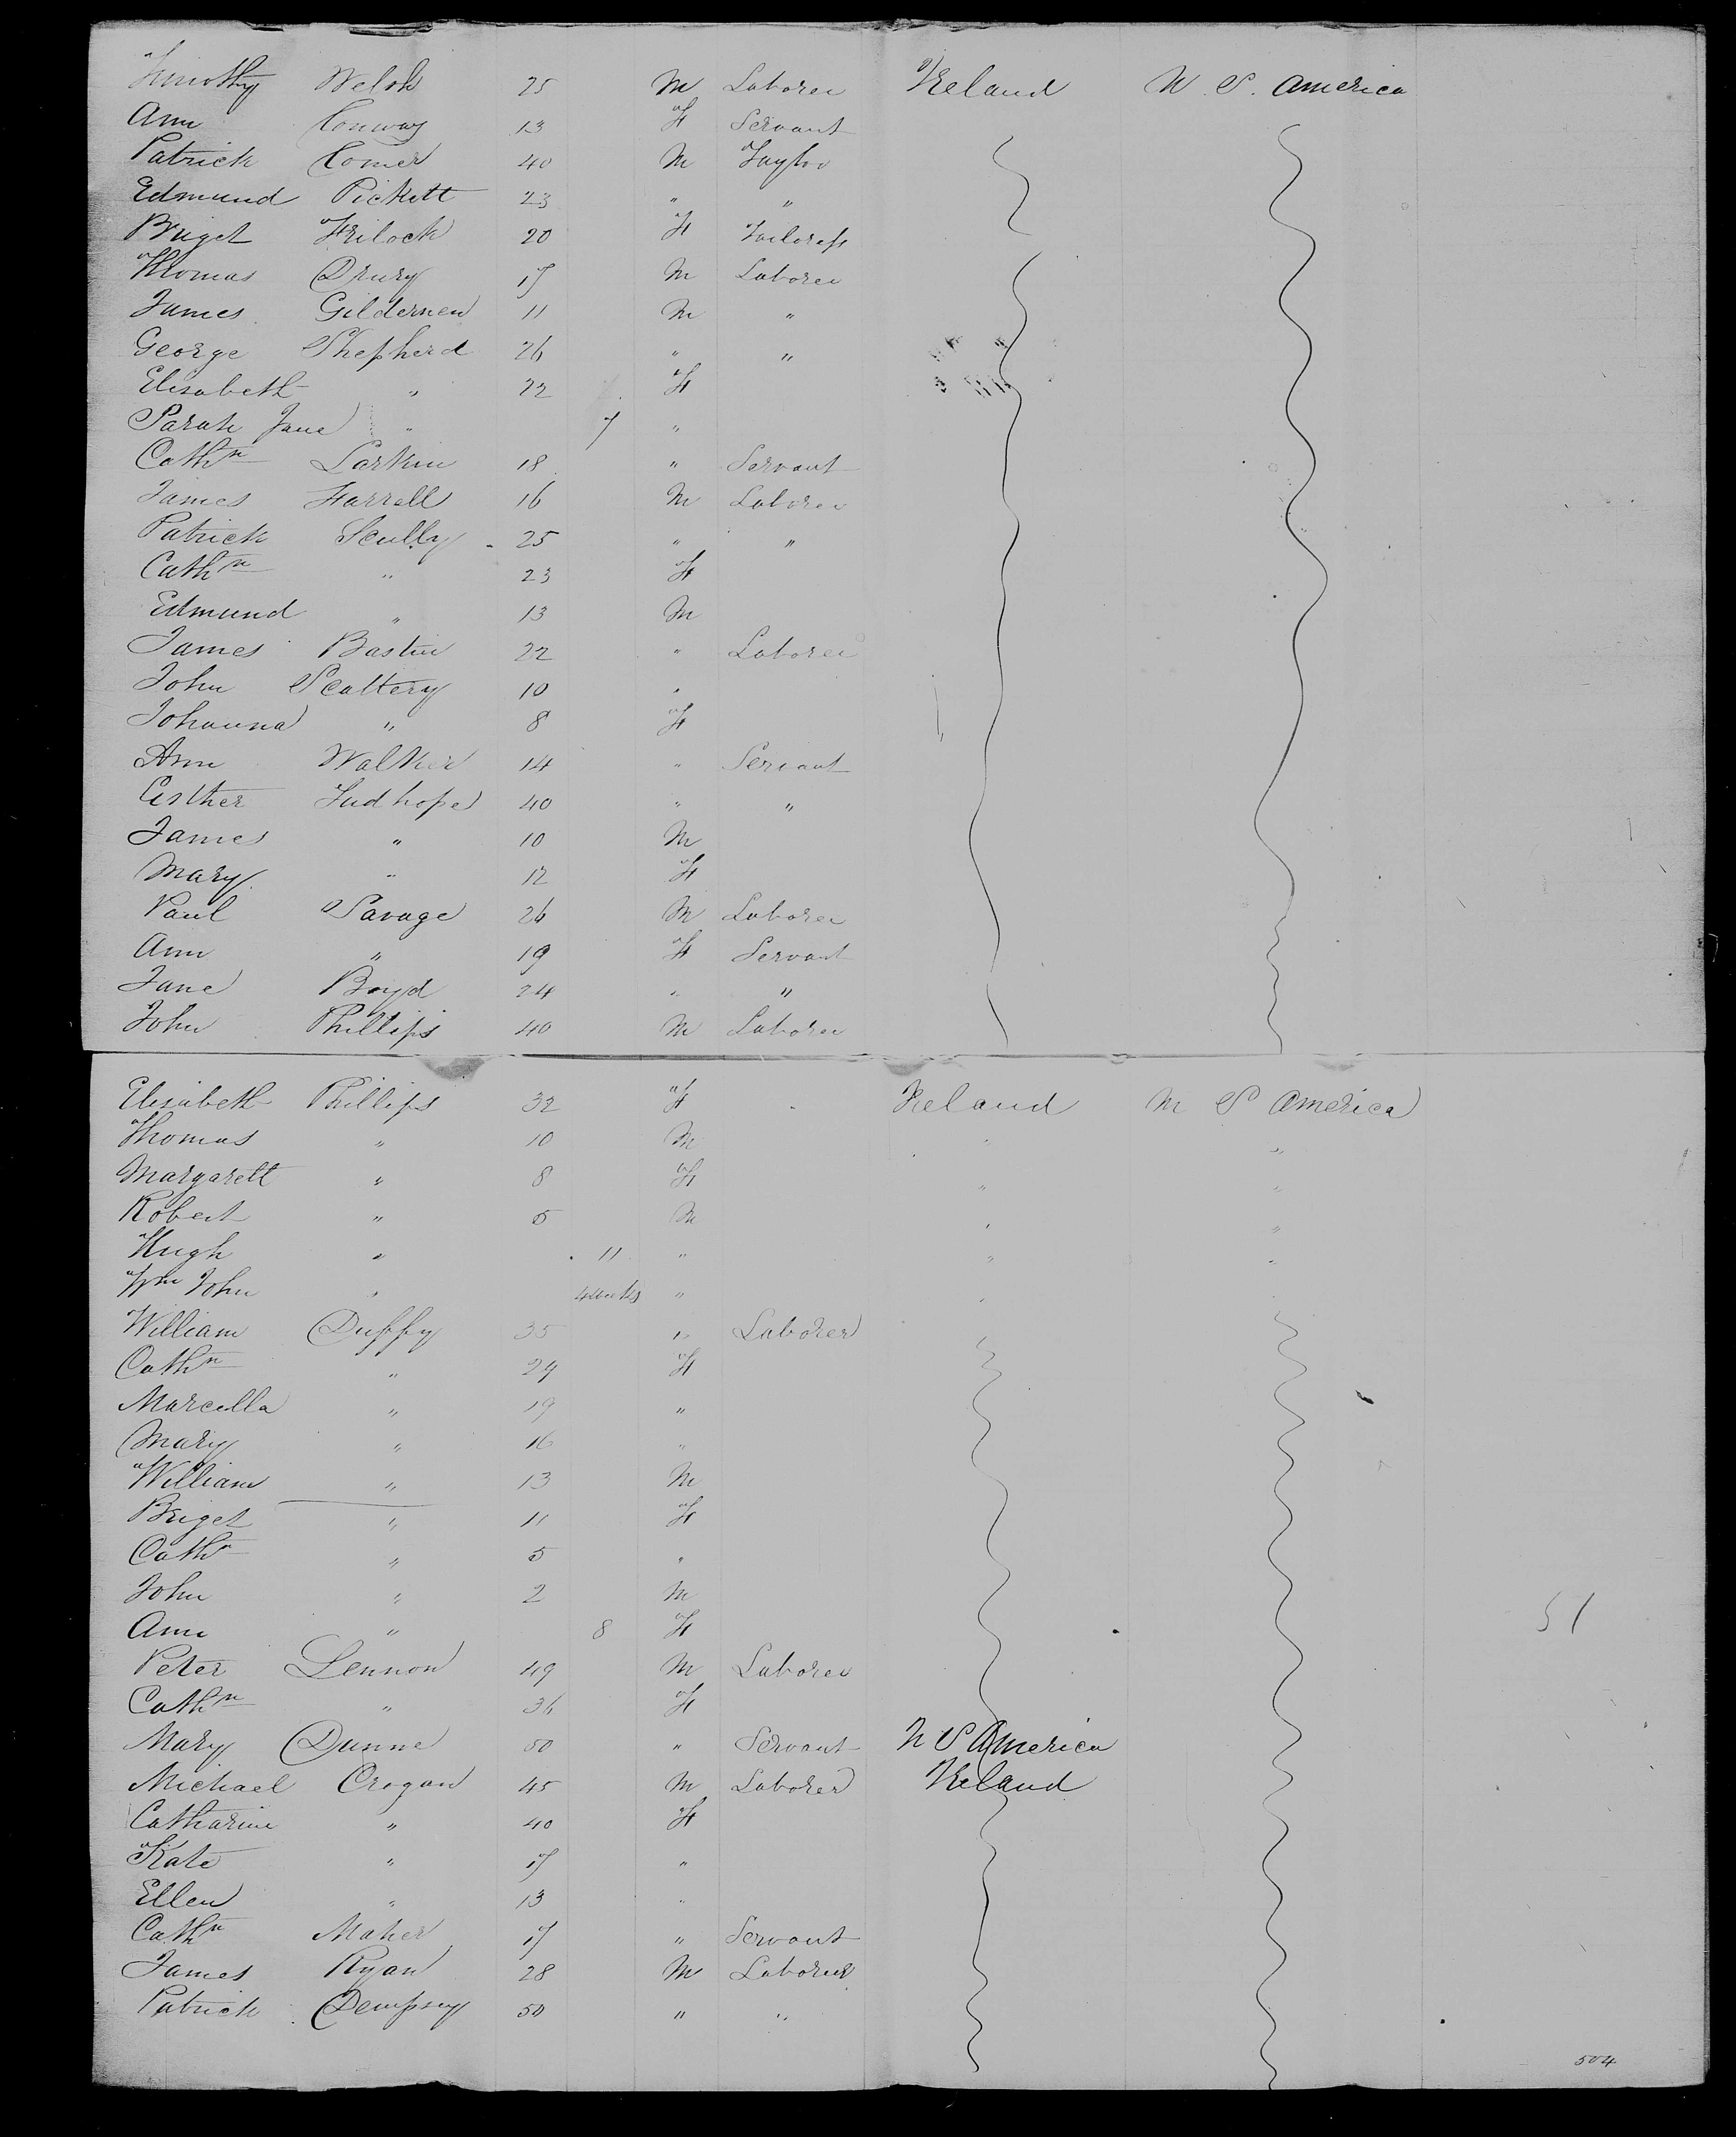 Timothy Welsh 25 M Laborer Ireland U. S. America
Ann Conway 13 F Servant
Patrick Comer 40 M Taylor
Edmund Pickett 23 " "
Briget 20 F Tailoress
Thomas Drury 17 M Laborer
James 11 M "
George Shepherd 26 " "
Elisabeth " 22 F
Sarah Jane " 7 "
Cathn Larkin 18 " Servant
James Farrell 16 M Laborer
Patrick Scully 25 " "
Cathn " 23 F
Edmund " 13 M
James Bastin 22 " Laborer
John Scattery 10 "
Johanna " 8 F
Ann Walker 14 " Servant
Esther Tudhope 40 " "
James " 10 M
Mary " 12 F
Paul Savage 26 M Laborer
Ann " 19 F Servant
Jane Boyd 24 " "
John Phillips 40 M Laborer
Elisabeth Phillips 32 F Ireland U S America
Thomas " 10 M " "
Margarett " 8 F " "
Robert " 5 M " "
Hugh " 11 " " "
Wm John " 4 weeks " "
William Duffy 35 " Laborer
Cathn " 24 F
Marcella " 19 "
Mary " 16 "
William " 13 M
Briget " 11 F
Cathn " 5 "
John " 2 M
Ann " 8 F 51
Peter Lennon 49 M Laborer
Cathn " 36 F
Mary Dunne 50 " Servant U S America
Michael Crogan 45 M Laborer Ireland
Catharine " 40 F
Kate " 17 "
Ellen " 13 "
Cathn Maher 17 " Servant
James Ryan 28 M Laborer
Patrick Dempsey 50 " "
504